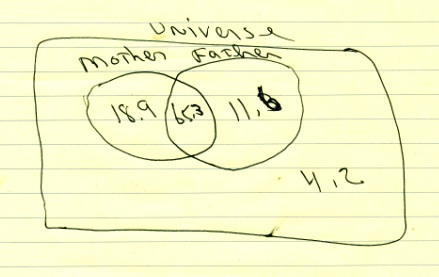 Universe
Mother Father
18.9 65.3 11.6
4.2